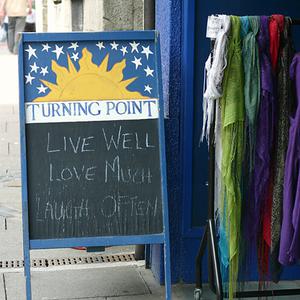 TURNING POINT
LIVE WELL
LOVE MUCH
LAUGH OFTEN